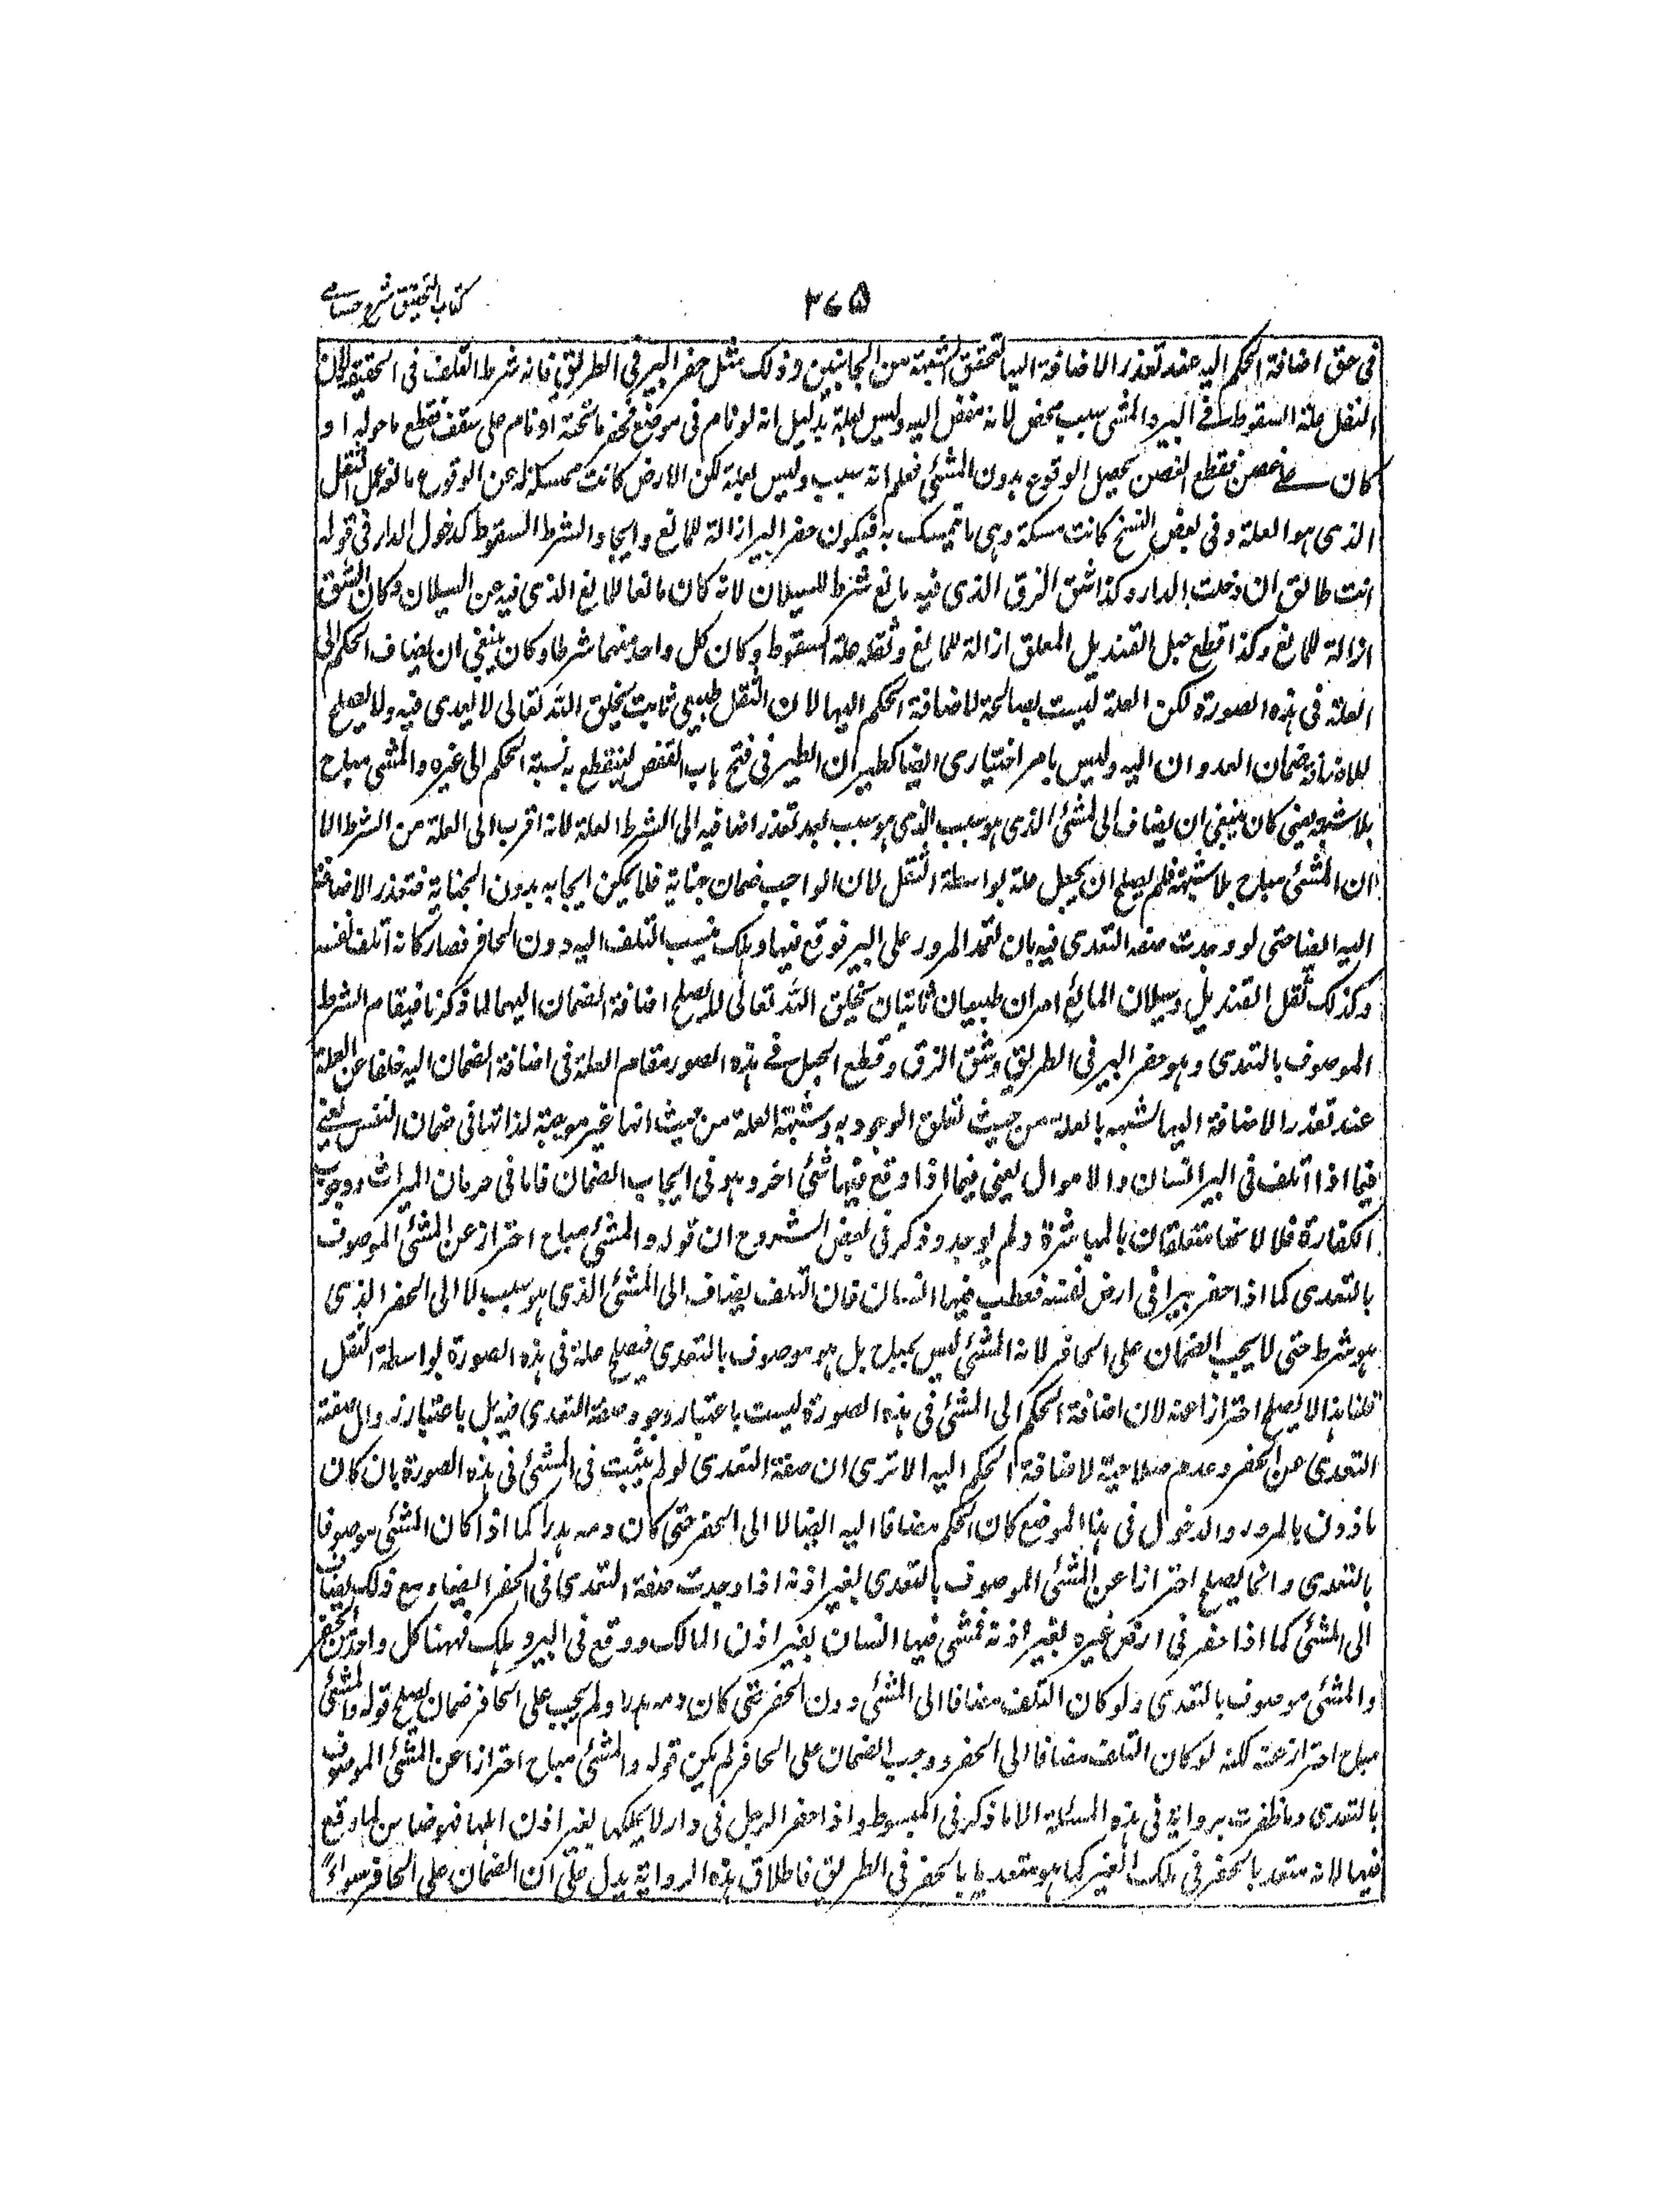 كتاب التحقيق شرح حسامى
٣٧٥
فى حق اضافة الحكم اليه عند تعذر الاضافة اليها لتحقق الشبهة من الجانبين وذلك مثل حفر البير فى الطريق فانه شرط التلف فى الحقيقة لان
الثقل علة السقوط فى البير والمشى سبب محض لانه مفض اليه وليس بعلة بدليل انه لو نام فى موضع فحفر ما تحته او نام على سقف فقطع ما حوله او
كان على غصن فقطع الغصن يحصل الوقوع بدون المشى فعلم انه سبب وليس بعلة لكن الارض كانت ممسكة له عن الوقوع مانعة عمل الثقل
الذى هو العلة وفى بعض النسخ كانت مسكة وهى ما تمسك به فيكون حفر البير ازالة للمانع وايجاد الشرط السقوط كدخول الدار فى قوله
انت طالق ان دخلت الدار وكذا شق الزق الذى فيه مائع شرط للسيلان لانه كان مانعا للمائع الذى فيه عن السيلان وكان الشق
ازالة للمانع وكذا قطع حبل القنديل المعلق ازالة للمانع وثقله علة السقوط وكان كل واحد منهما شرطا وكان ينبغى ان يضاف الحكم الى
العلة فى هذه الصورة لكن العلة ليست بصالحة لاضافة الحكم اليها لان الثقل طبيعى ثابت بخلق الله تعالى لا تعدى فيه ولا يصلح
ضمان العدوان اليه وليس بامر اختيارى ايضا كطيران الطير فى فتح باب القفص لينقطع به نسبة الحكم الى غيره والمشى مباح
بلا شبهة يعنى كان ينبغى ان يضاف الى المشى الذى هو سبب الذى هو سبب بعد تعذر اضافيه الى الشرط العلة لانه اقرب الى العلة من الشرط الا
ان المشى مباح بلا شبهة فلم يصلح ان يجعل علة بواسطة الثقل لان الواجب ضمان جناية فلا يمكن ايجابه بدون الجناية فتعذر الاضافة
اليه ايضا حتى لو وجدت صفة التعدى فيه بان تعمد المرور على البير فوقع فيها وهلك ينسب التلف اليه دون الحافر فصار كانه اتلف نفسه
وكذلك ثقل القنديل وسيلان المائع امران طبيعيان ثابتان بخلق الله تعالى لا يصلح اضافة الضمان اليهما لما ذكرنا فيقام الشرط
الموصوف بالتعدى وهو حفر البير فى الطريق وشق الزق وقطع الحبل فى هذه الصور مقام العلة فى اضافة الضمان اليه خلفا عن العلة
عند تعذر الاضافة اليها لشبهه بالعلة من حيث تعلق الوجود به وشبهة العلة من حيث انها غير موجبة لذاتها فى ضمان النفس يعنى
فيما اذا تلف فى البير انسان والاموال يعنى فيما اذا وقع فيها شئ اخر وهو فى ايجاب الضمان فاما فى حرمان الميراث ووجوب
الكفارة فلا لانهما متعلقان بالمباشرة ولم يوجد وذكر فى بعض الشروح ان قوله والمشى مباح احتراز عن المشى الموصوف
بالتعدى كما اذا حفر بيرا فى ارض نفسه فعطب فيها انسان فان التلف يضاف الى المشى الذى هو سبب لا الى الحفر الذى
هو شرط حتى لا يجب الضمان على الحافر لانه المشى ليس بمباح بل هو موصوف بالتعدى فيصلح علة فى هذه الصورة بواسطة الثقل
قلنا هذا لا يصلح احترازا عنه لان اضافة الحكم الى المشى فى هذه الصورة ليست باعتبار وجود صفة التعدى فيه بل باعتبار زوال صفة
التعدى عن الحفر وعدم صلاحية لاضافة الحكم اليه الا ترى ان صفة التعدى لو لم يثبت فى المشى فى هذه الصورة بان كان
ماذون بالمرور والدخول فى هذا الموضع كان الحكم مضافا اليه ايضا لا الى الحفر حتى كان دمه هدرا كما اذا كان المشى موصوفا
بالتعدى وانما يصلح احترازا عن المشى الموصوف بالتعدى بغير اذنه اذا وجدت صفة التعدى فى الحفر ايضا ومع ذلك يضاف
الى المشى كما اذا حفر فى ارض غيره بغير اذنه فمشى فيها انسان بغير اذن المالك ووقع فى البير وهلك فههنا كل واحد من الحفر
والمشى موصوف بالتعدى ولو كان التلف مضافا الى المشى دون الحفر حتى كان دمه هدرا ولم يجب على الحافر ضمان يصلح قوله والمشى
مباح احتراز عنه لكنه لو كان التلف مضافا الى الحفر ووجب الضمان على الحافر لم يكن قوله والمشى مباح احترازا عن المشى الموصوف
بالتعدى وما ظفرت برواية فى هذه المسئلة الا ما ذكر فى المبسوط واذا حفر الرجل فى دار لا يملكها بغير اذن اهلها فهو ضامن لما وقع
فيها لانه متعد بالحفر فى ملك الغير كما هو متعد يا بالحفر فى الطريق فاطلاق هذه الرواية يدل على ان الضمان على الحافر سواءً